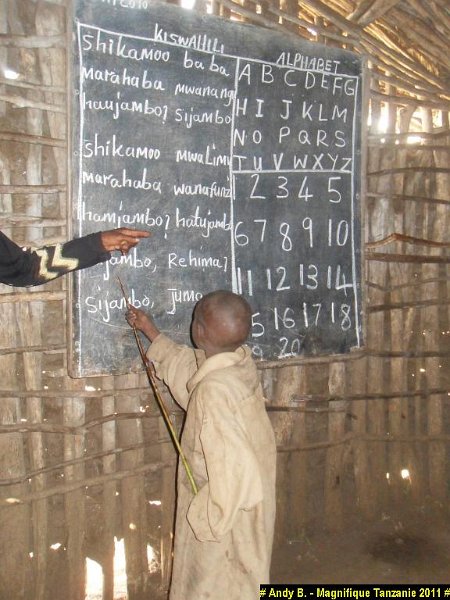 KISWAHILI
shikamoo baba
marahaba mwanang
haujambo? sijambo
shikamoo mwalimu
marahaba wanafunz
hamjambo? hatujambo
jambo, Rehima?
sijambo, Juma
ALPHABET
A B C D E F G
H I J K L M
N O P Q R S
T U V W X Y Z
2 3 4 5
6 7 8 9 10
11 12 13 14
5 16 17 18
20
# Andy B. - Magnifique Tanzanie 2011 #